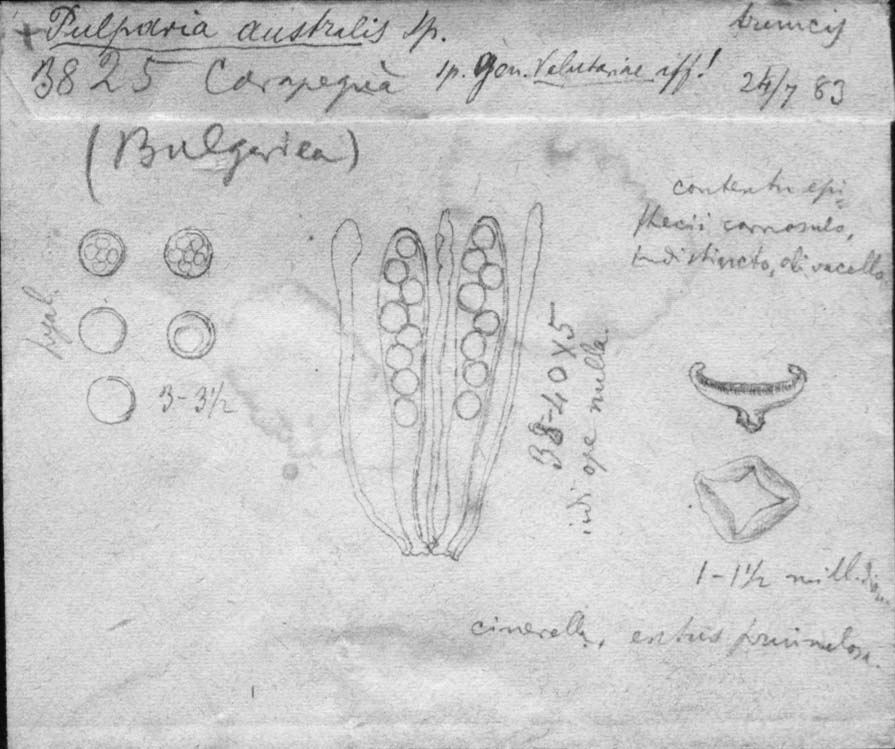 + Pulparia australis Sp.
truncis
3825 Carapeguà sp. gen. Velutarine aff!
24/7 83
(Bulgariea)
contextu epi=
thecii carnosulo,
indistincto, olivacello
hyal.
3-3½
38-40x5
iodi ope nulla
1-1½ mill. diam
cinerella, extus pruinulosa.